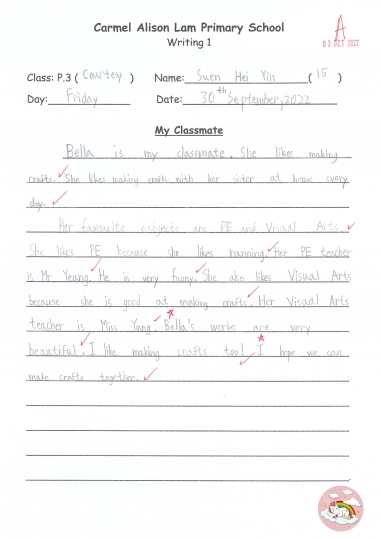 Carmel Alison Lam Primary School
Writing 1
A
03 OCT 2022
Class: P.3 ( Courtesy ) Name: Suen Hei Yin ( 15 )
Day: Friday Date: 30th September, 2022
My Classmate
Bella is my classmate. She likes making
crafts. She likes making crafts with her sister at home every
day.
Her favourite subjects are PE and Visual Arts.
She likes PE because she likes running. Her PE teacher
is Mr Yeung. He is very funny. She also likes Visual Arts
because she is good at making crafts. Her Visual Arts
teacher is Miss Yung. Bella's works are very
beautiful. I like making crafts too! I hope we can
make crafts together.